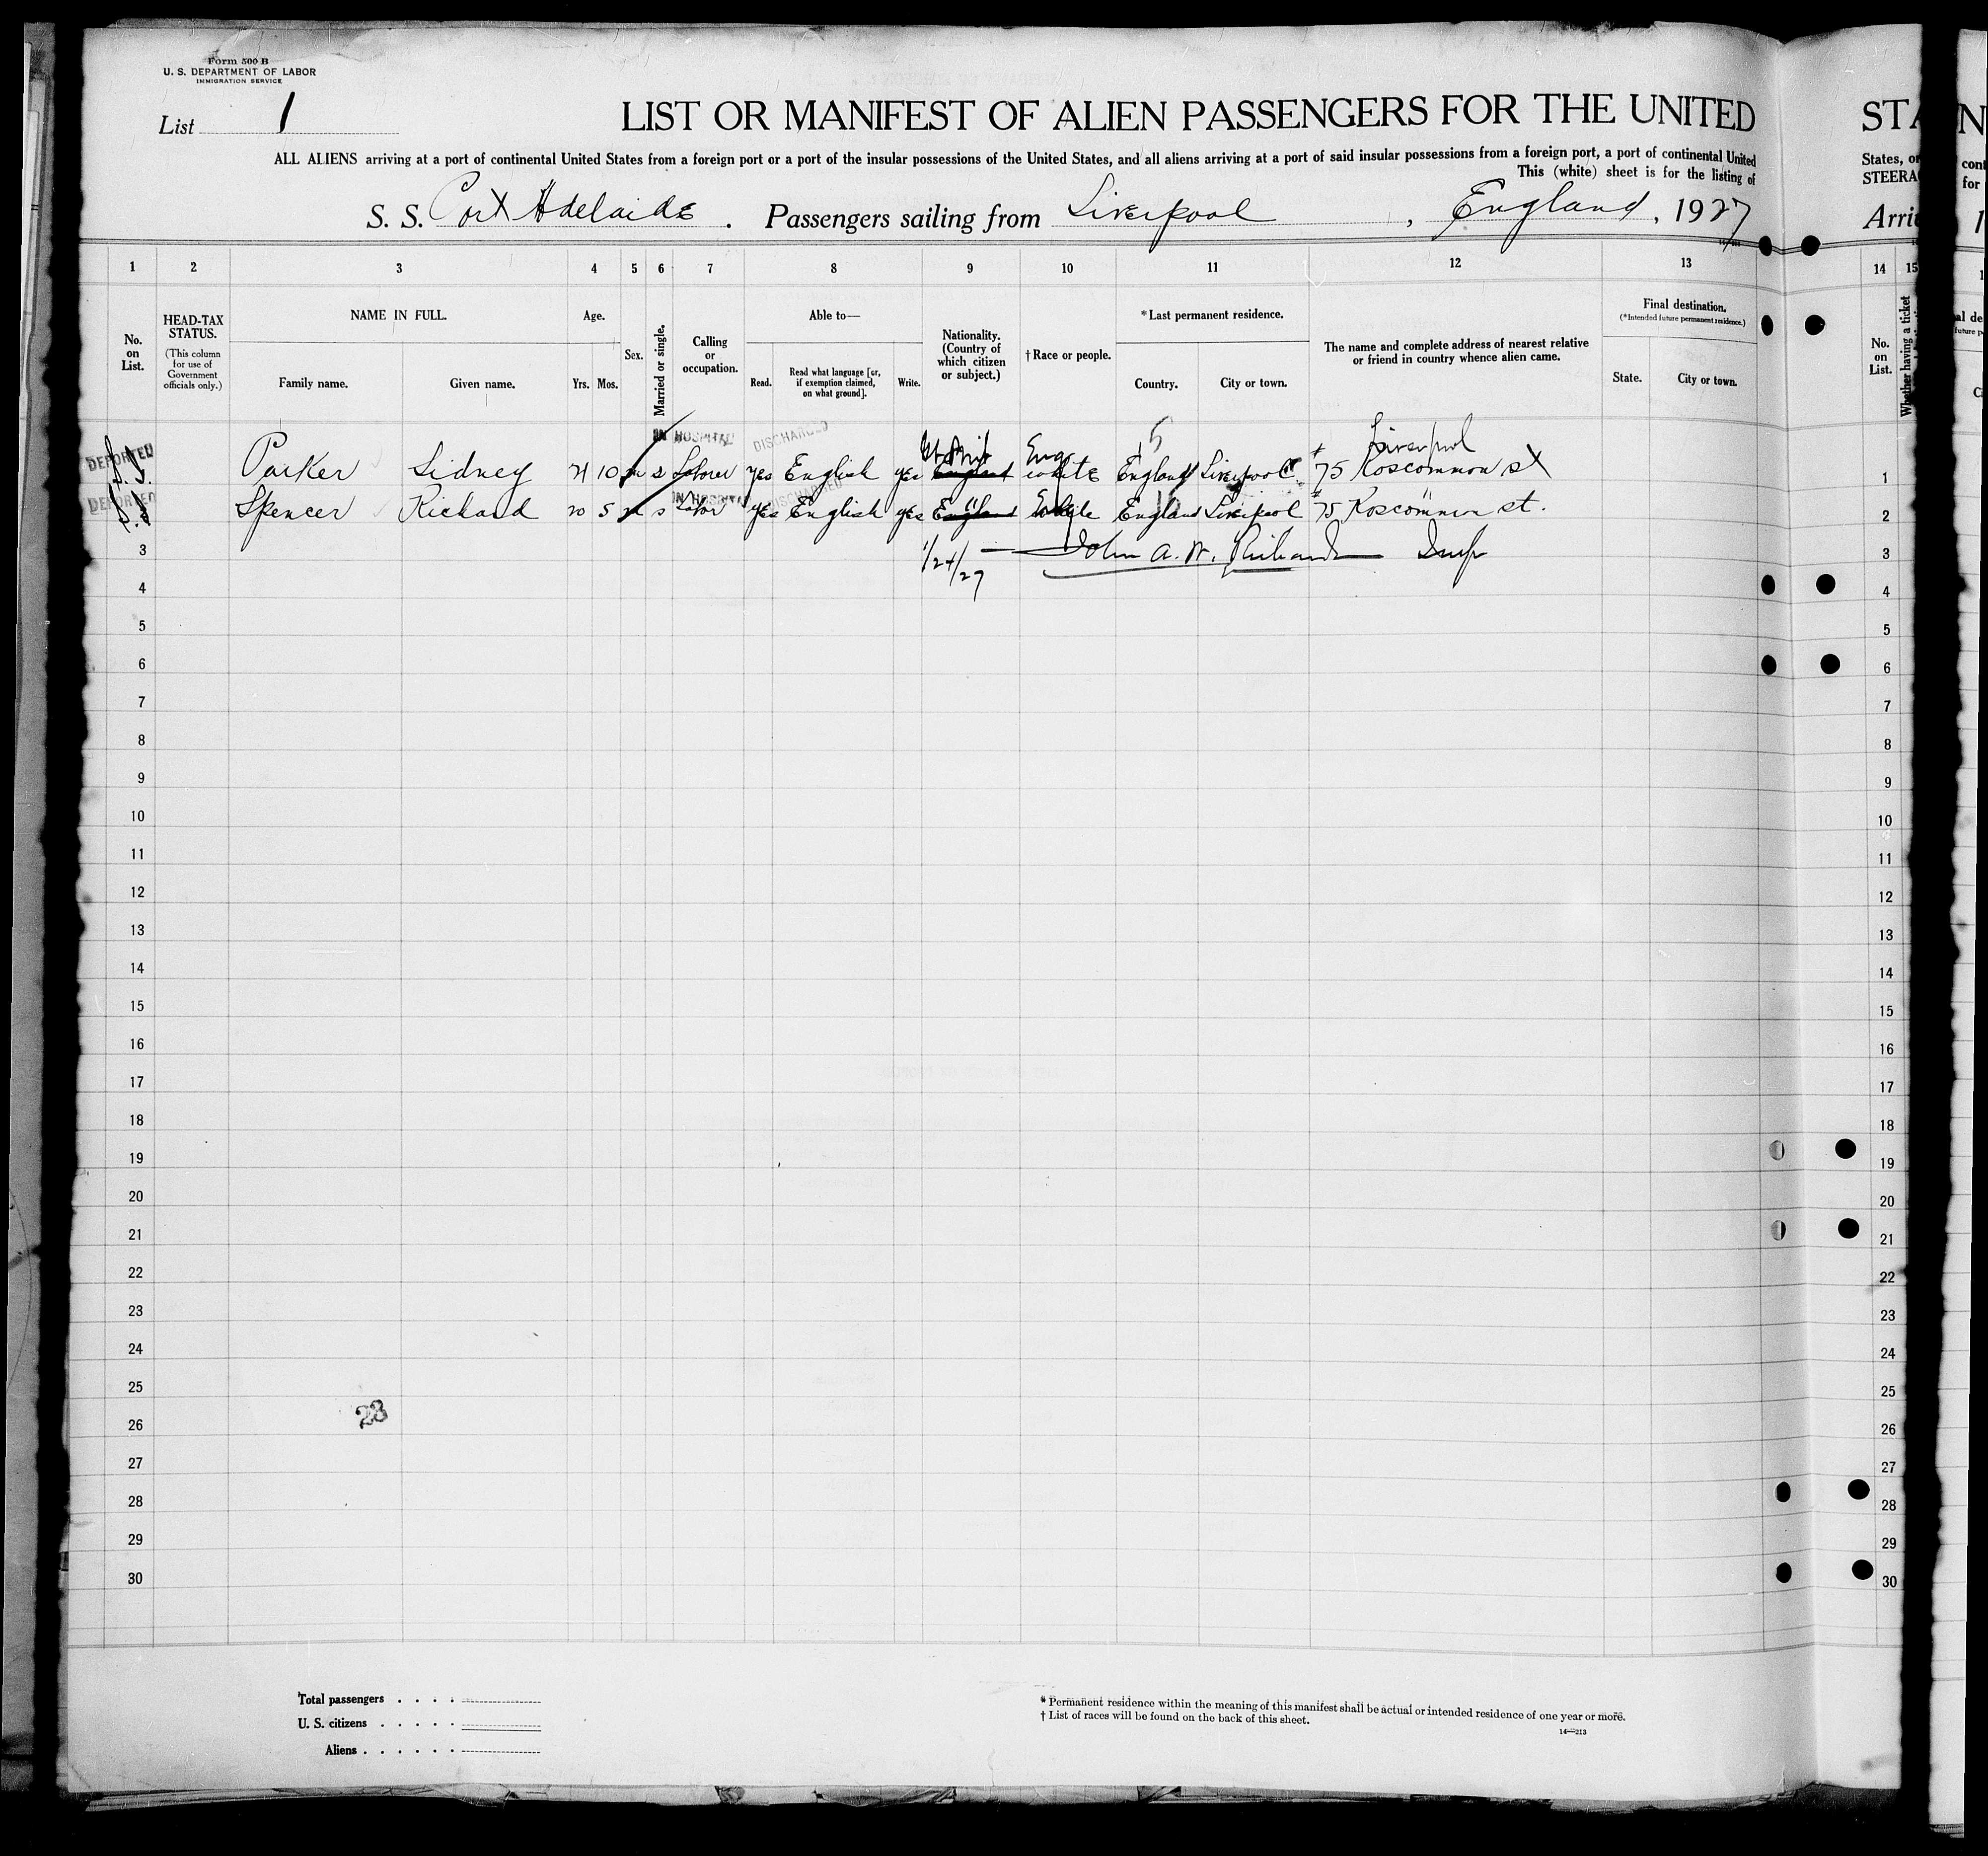 Form 500 B
U. S. DEPARTMENT OF LABOR
IMMIGRATION SERVICE
List 1
LIST OR MANIFEST OF ALIEN PASSENGERS FOR THE UNITED
ALL ALIENS arriving at a port of continental United States from a foreign port or a port of the insular possessions of the United States, and all aliens arriving at a port of said insular possessions from a foreign port, a port of continental United
This (white) sheet is for the listing of
S. S. Port Adelaide . Passengers sailing from Liverpool , England , 1927
STA
States, or
STEERA
Arri
1 2 3 4 5 6 7 8 9 10 11 12 13 14 15
No. on List.
HEAD-TAX STATUS.
(This column for use of Government officials only.)
NAME IN FULL.
Family name. Given name.
Age.
Yrs. Mos.
Sex.
Married or single.
Calling or occupation.
Able to—
Read. Read what language [or, if exemption claimed, on what ground]. Write.
Nationality. (Country of which citizen or subject.)
†Race or people.
*Last permanent residence.
Country. City or town.
The name and complete address of nearest relative or friend in country whence alien came.
Final destination.
(*Intended future permanent residence.)
State. City or town.
No. on List.
Whether having a ticket
IN HOSPITAL DISCHARGED Gt Brit Eng 5 Liverpool
DEPORTED Parker Sidney 21 10 m s Laborer yes English yes England white England Liverpool 75 Roscommon st 1
IN HOSPITAL DISCHARGED
DEPORTED Spencer Richard 20 5 m s Labor yes English yes England White England Liverpool 75 Roscommon st. 2
3 1/24/27 John A. W. Richards Insp 3
4 4
5 5
6 6
7 7
8 8
9 9
10 10
11 11
12 12
13 13
14 14
15 15
16 16
17 17
18 18
19 19
20 20
21 21
22 22
23 23
24 24
25 25
23
26 26
27 27
28 28
29 29
30 30
Total passengers . . . .
U. S. citizens . . . . .
Aliens . . . . . .
* Permanent residence within the meaning of this manifest shall be actual or intended residence of one year or more.
† List of races will be found on the back of this sheet.
14—213